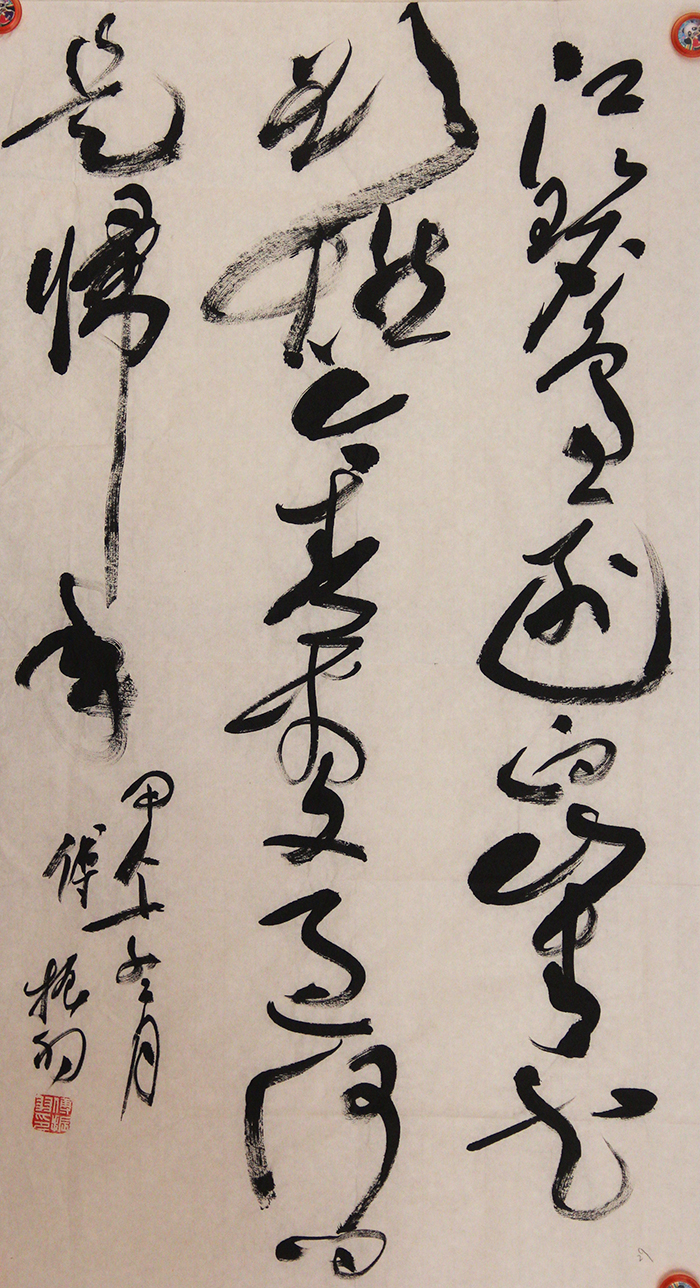 江碧鳥逾白山青花
欲燃今春看又過何日
是歸年
甲午 月
傅振羽